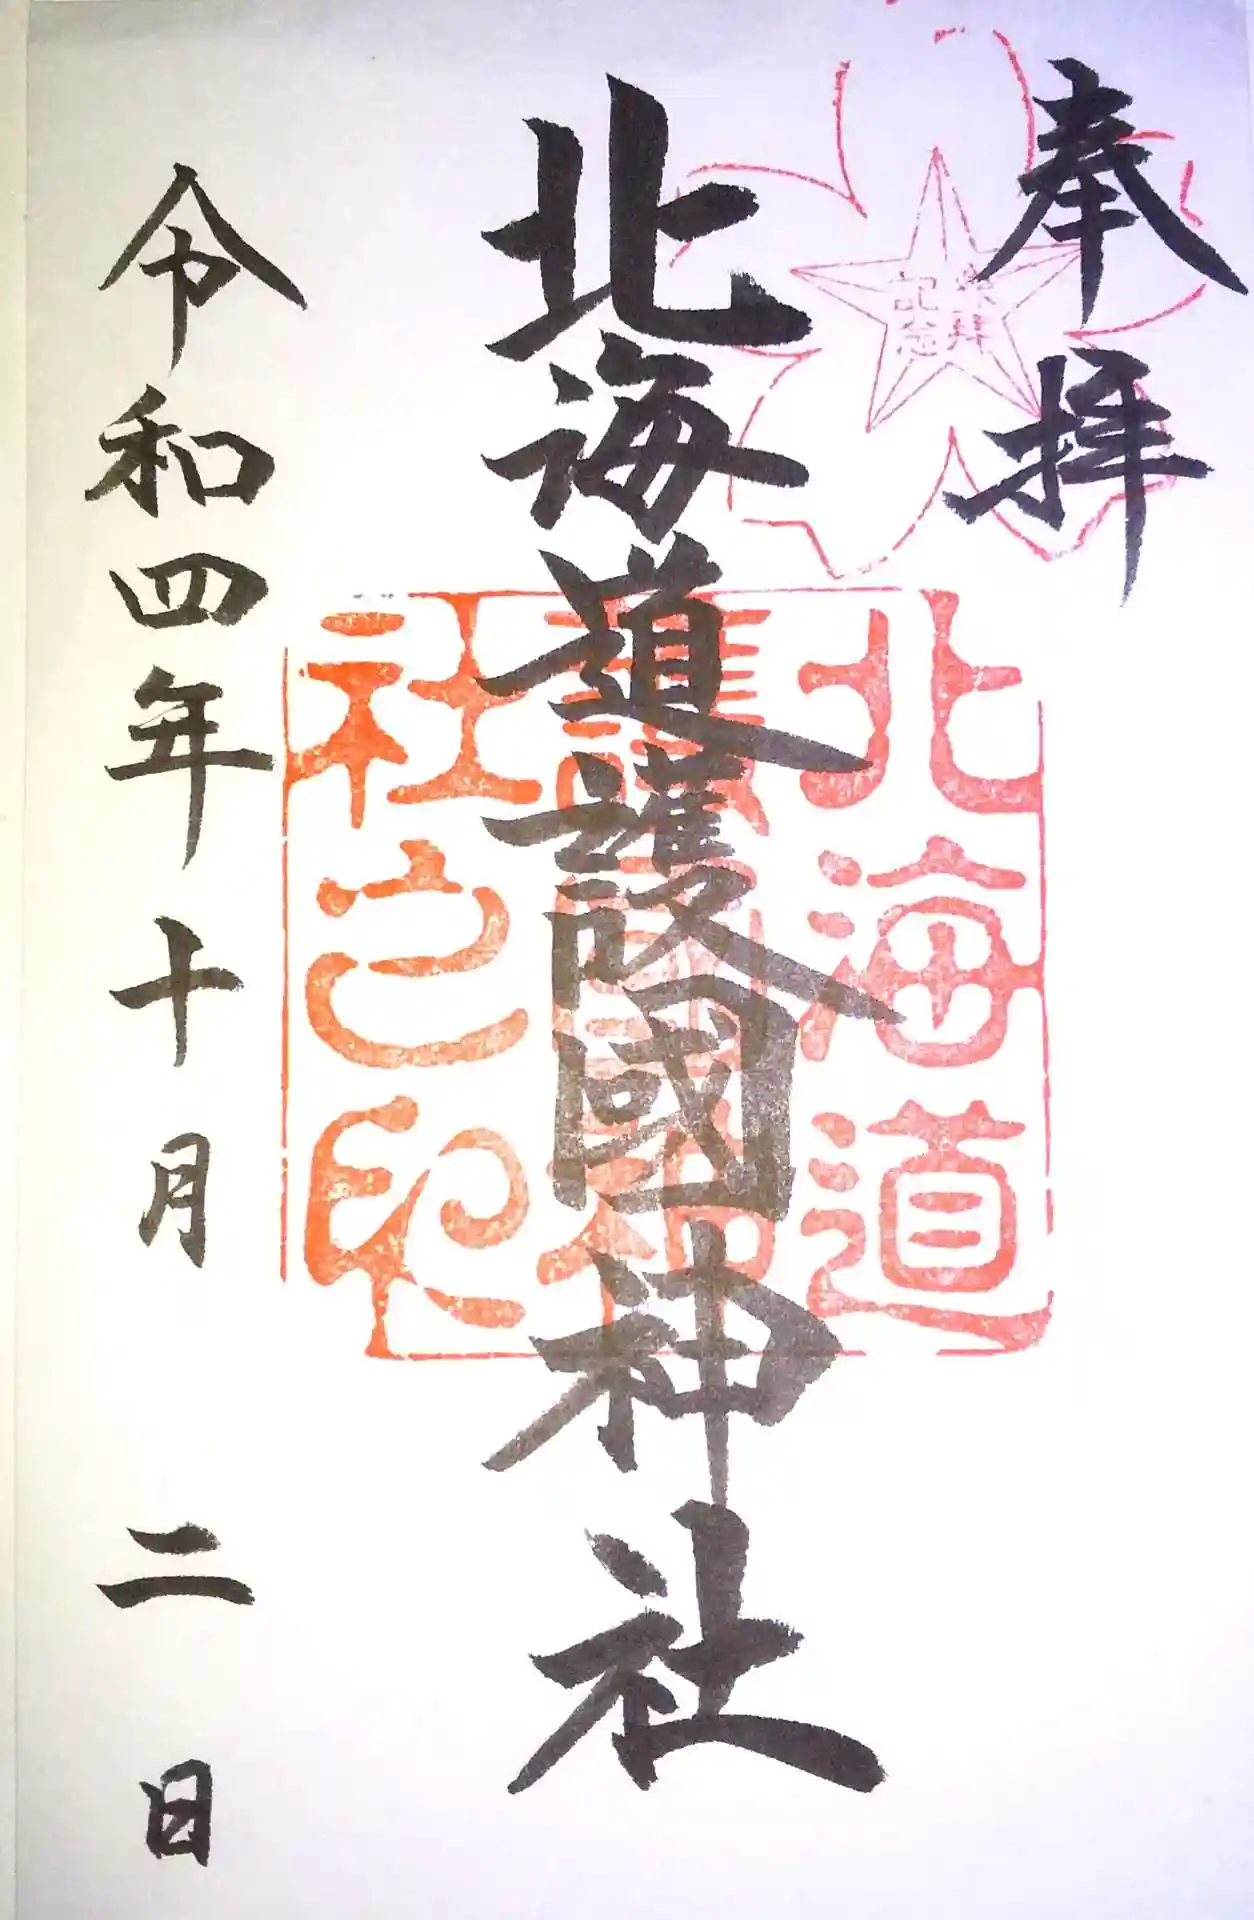 奉拝
参拝
記念
北海道護國神社
北海道
護國神
社之印
令和四年十月二日